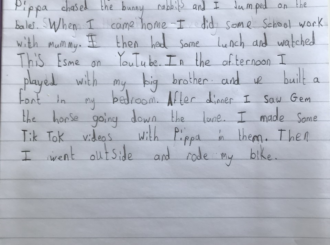 Pippa chased the bunny rabbits and I jumped on the
bales. When I came home I did some school work
with mummy. I then had some lunch and watched
This Esme on YouTube. In the afternoon I
played with my big brother and we built a
Fort in my bedroom. After dinner I saw Gem
the horse going down the lane. I made some
Tik Tok videos with Pippa in them. Then
I went outside and rode my bike.